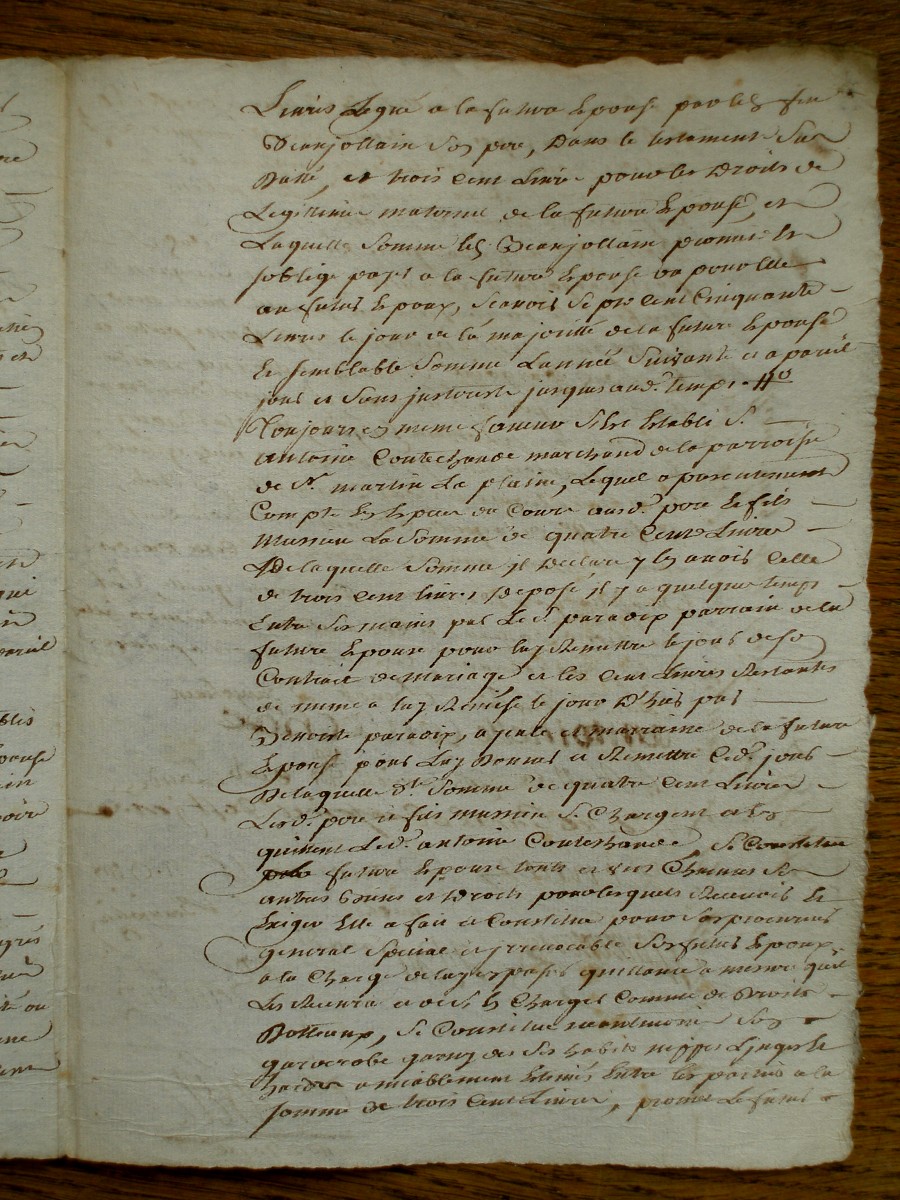 Livres Legué a la future Epouse par led. feu
Jean jollain Son pere, Dans le testament Sus
Datté, et trois Cent Livres pour les Droits de
Legitime maternel de la future Epouse, et
Laquelle Somme led. Jean jollain promet et
soblige payer a la future Epouse ou pour Elle
au futur Epoux, Scavoir Sept Cent Cinquante
Livres le jour de la majorité de la future Epouse
Et semblable Somme Lannée Suivante et a pareil
jour et Sans jusques aud. temps.
Toujours en meme faveur S'est Etabli S.
antoine Contechande marchand de la parroisse
de St. martin La plaine, Lequel a presentement
Compté En Especes du Cours auxd. pere Et fils
Mussieu La Somme de quatre Cents Livres
De laquelle Somme il Declare y En avoir Celle
de trois Cent livres Deposé il y a quelque temps
Entre Ses mains par Le Sr. paradix parrain de la
future Epouse pour luy Remettre le jour de so
Contract de mariage et les Cent Livres Restantes
de meme a luy Remise le jour D'hier par
Benoite paradix, ayeule et marraine de la future
Epouse pour Luy Donner et Remettre Ced. jour
De laquelle de. Somme de quatre Cent Livres
Lesd. pere et fils mussieu Se Chargent et En
quittent Led. antoine Contechande, Se Constitue
future Epouse touts et uns Chacuns Ses
autres biens et Droits pour lesquels Recevoir Et
Exiger Elle a fait et Constitue pour Son procureur
general Special et jrrevocable Son futur Epoux
a la Charge de luy En passer quittance a mesure qu'il
Les Recevra et de Sen Charger Comme de Droits
Dotteaux, Se Constitue neantmoins Son
garderobe garny des Ses habits nippes Linges et
hardes amiablement Estimés Entre Les parties a la
somme de trois Cent Livres, promet Le futur